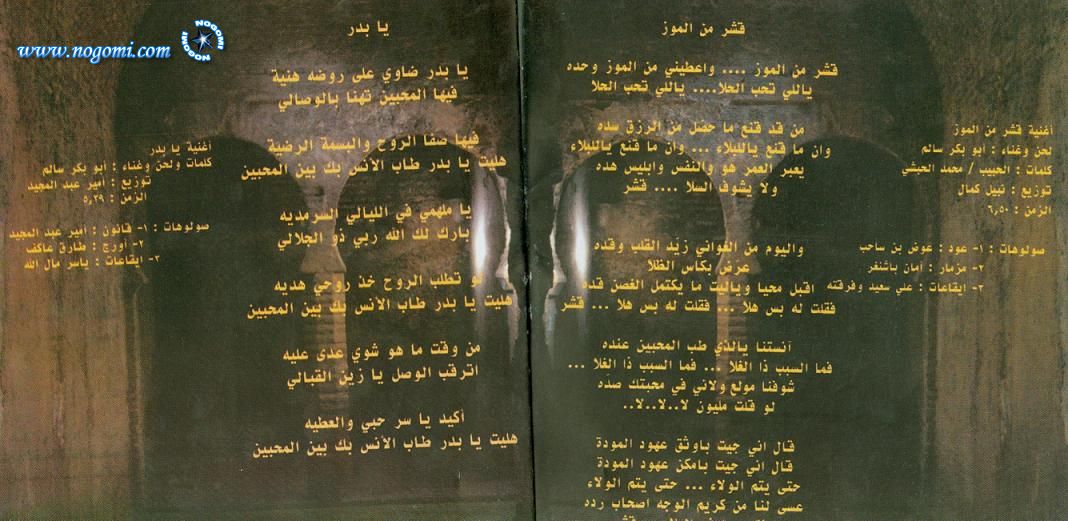 www.nogomi.com
NOGOMI
NOGOMI
قشر من الموز
قشر من الموز .... واعطيني من الموز وحده
ياللي تحب الحلا.... ياللي تحب الحلا
من قد قنع ما حصل من الرزق سده
وان ما قنع ياللبلاء ... وان ما قنع ياللبلاء
يعبر العمر هو والنفس وابليس هده
ولا يشوف السلا .... قشر
واليوم من الغواني زيّد القلب وقده
عرض بكاس الطلا
اقبل محيا وياليت ما يكتمل الغصن قده
فقلت له بس هلا ... فقلت له بس هلا ... قشر
آنستنا يالذي طب المحبين عنده
فما السبب ذا الغلا ... فما السبب ذا الغلا ...
شوفنا مولع ولاني في محبتك صدّه
لو قلت مليون لا..لا..لا..
قال اني جيت باوثق عهود المودة
قال اني جيت بامكن عهود المودة
حتى يتم الولاء ... حتى يتم الولاء
عسى لنا من كريم الوجه اصحاب رده
أغنية قشر من الموز
لحن وغناء : أبو بكر سالم
كلمات : الحبيب / محمد الحبشي
توزيع : نبيل كمال
الزمن : ٦,٥٠
صولوهات : ١- عود : عوض بن ساحب
٢- مزمار : أمان باشنفر
٣- ايقاعات : علي سعيد وفرقته
يا بدر
يا بدر ضاوي على روضه هنية
فيها المحبين تهنا بالوصالي
فيها صفا الروح والبسمة الرضية
هليت يا بدر طاب الآنس بك بين المحبين
يا ملهمي في الليالي السرمديه
بارك لك الله ربي ذو الجلالي
لو تطلب الروح خذ روحي هديه
هليت يا بدر طاب الآنس بك بين المحبين
من وقت ما هو شوي عدى عليه
اترقب الوصل يا زين القبالي
أكيد يا سر حبي والعطيه
هليت يا بدر طاب الآنس بك بين المحبين
أغنية يا بدر
كلمات ولحن وغناء : أبو بكر سالم
توزيع : أمير عبد المجيد
الزمن : ٥,٣٩
صولوهات : ١- قانون : أمير عبد المجيد
٢- أورج : طارق عاكف
٣- ايقاعات : ياسر مال الله